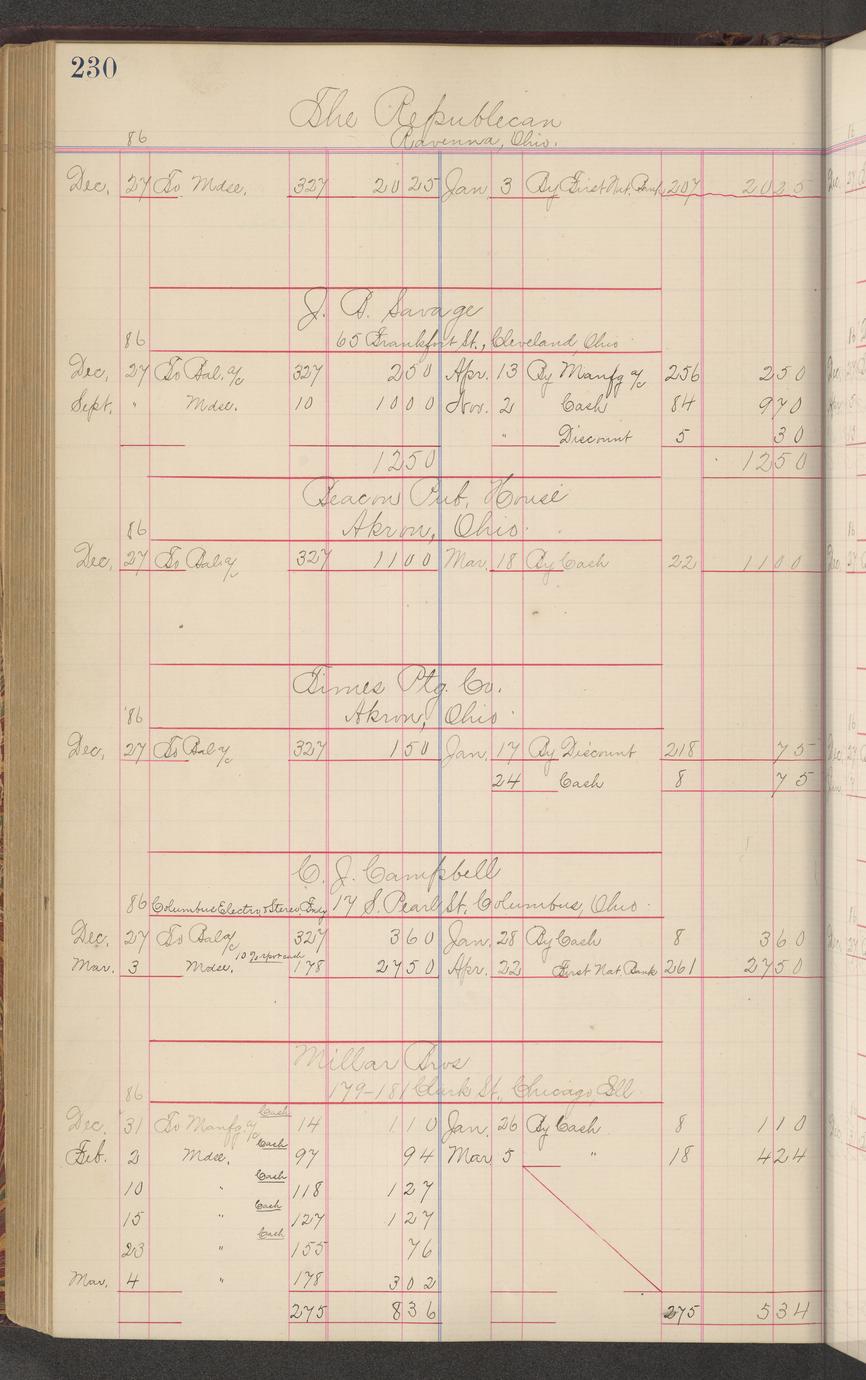 230
The Republican
86 Ravenna, Ohio.
Dec. 27 To Mdse. 327 20 25 Jan 3 By First Nat. Bank 207 20 25
J. B. Savage
86 65 Frankfort St., Cleveland, Ohio
Dec. 27 To Bal. a/c 327 2 50 Apr. 13 By Manfg a/c 256 2 50
Sept. " Mdse. 10 10 00 Nov. 2 Cash 84 9 70
" Discount 5 30
12 50 12 50
Beacon Pub. House
86 Akron, Ohio.
Dec. 27 To Bal a/c 327 11 00 Mar. 18 By Cash 22 11 00
Times Ptg. Co.
'86 Akron, Ohio.
Dec. 27 To Bal a/c 327 1 50 Jan. 17 By Discount 218 75
24 Cash 8 75
C. J. Campbell
86 Columbus Electro & Stereo 17 S. Pearl St. Columbus, Ohio.
Dec. 27 To Bal a/c 327 3 60 Jan. 28 By Cash 8 3 60
Mar. 3 Mdse. 10% 178 27 50 Apr. 22 First Nat. Bank 261 27 50
Millar Bros
86 179-181 Clark St., Chicago Ill
Dec. 31 To Manfg a/c Cash 14 1 10 Jan. 26 By Cash 8 1 10
Feb. 2 Mdse. Cash 97 94 Mar 5 " 18 4 24
10 " Cash 118 1 27
15 " Cash 127 1 27
23 " Cash 155 76
Mar. 4 " 178 3 02
275 8 36 275 5 34